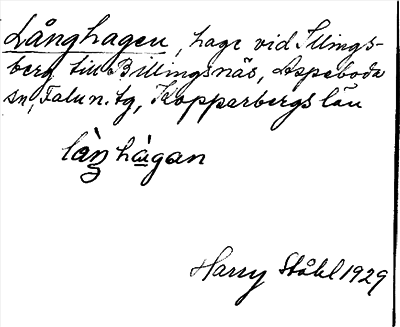 Långhagen, hage vid Illings-
berg till Billingsnäs, Aspeboda
sn, Falu n. tg, Kopparbergs län
làŋhàgan
Harry Ståhl 1929